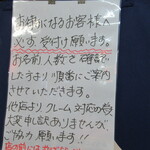 お待ちになるお客様へ
必ず受付け願います。
お名前、人数を確認で
したうえより順番にご案内
させていただきます。
クレーム対応の為
大変申訳ありませんが
ご協力願います!!